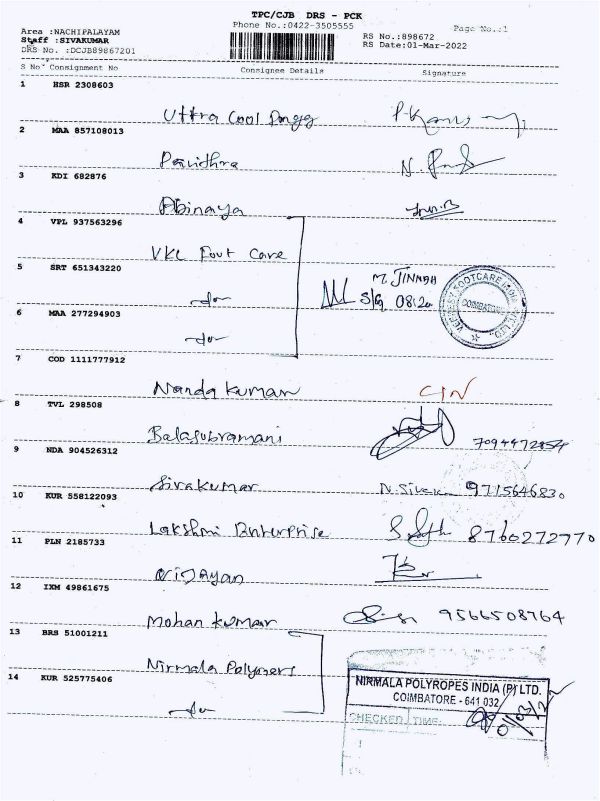 TPC/CJB DRS - PCK
Phone No.:0422-3505555
Page No.:1
Area :NACHIPALAYAM
Staff :SIVAKUMAR
DRS No. :DCJB89867201
RS No.:898672
RS Date:01-Mar-2022
S No Consignment No Consignee Details Signature
1 HSR 2308603
Uttra Cool
2 MAA 857108013
Pavithra
3 KDI 682876
Abinaya
4 VPL 937563296
VKC Foot Care
5 SRT 651343220
-do-
M. JINNAH
6 MAA 277294903
-do-
COIMBATORE
7 COD 1111777912
Nanda Kumar
8 TVL 298508
Balasubramani
9 NDA 904526312
Sivakumar N. Siva 9715646830
10 KUR 558122093
Lakshmi Enterprise 8760272770
11 PLN 2185733
Vijayan
12 IXM 49861675
Mohan Kumar 9566508764
13 BRS 51001211
Nirmala Polymers
14 KUR 525775406
-do-
NIRMALA POLYROPES INDIA (P) LTD.
COIMBATORE - 641 032
CHECKED TIME: